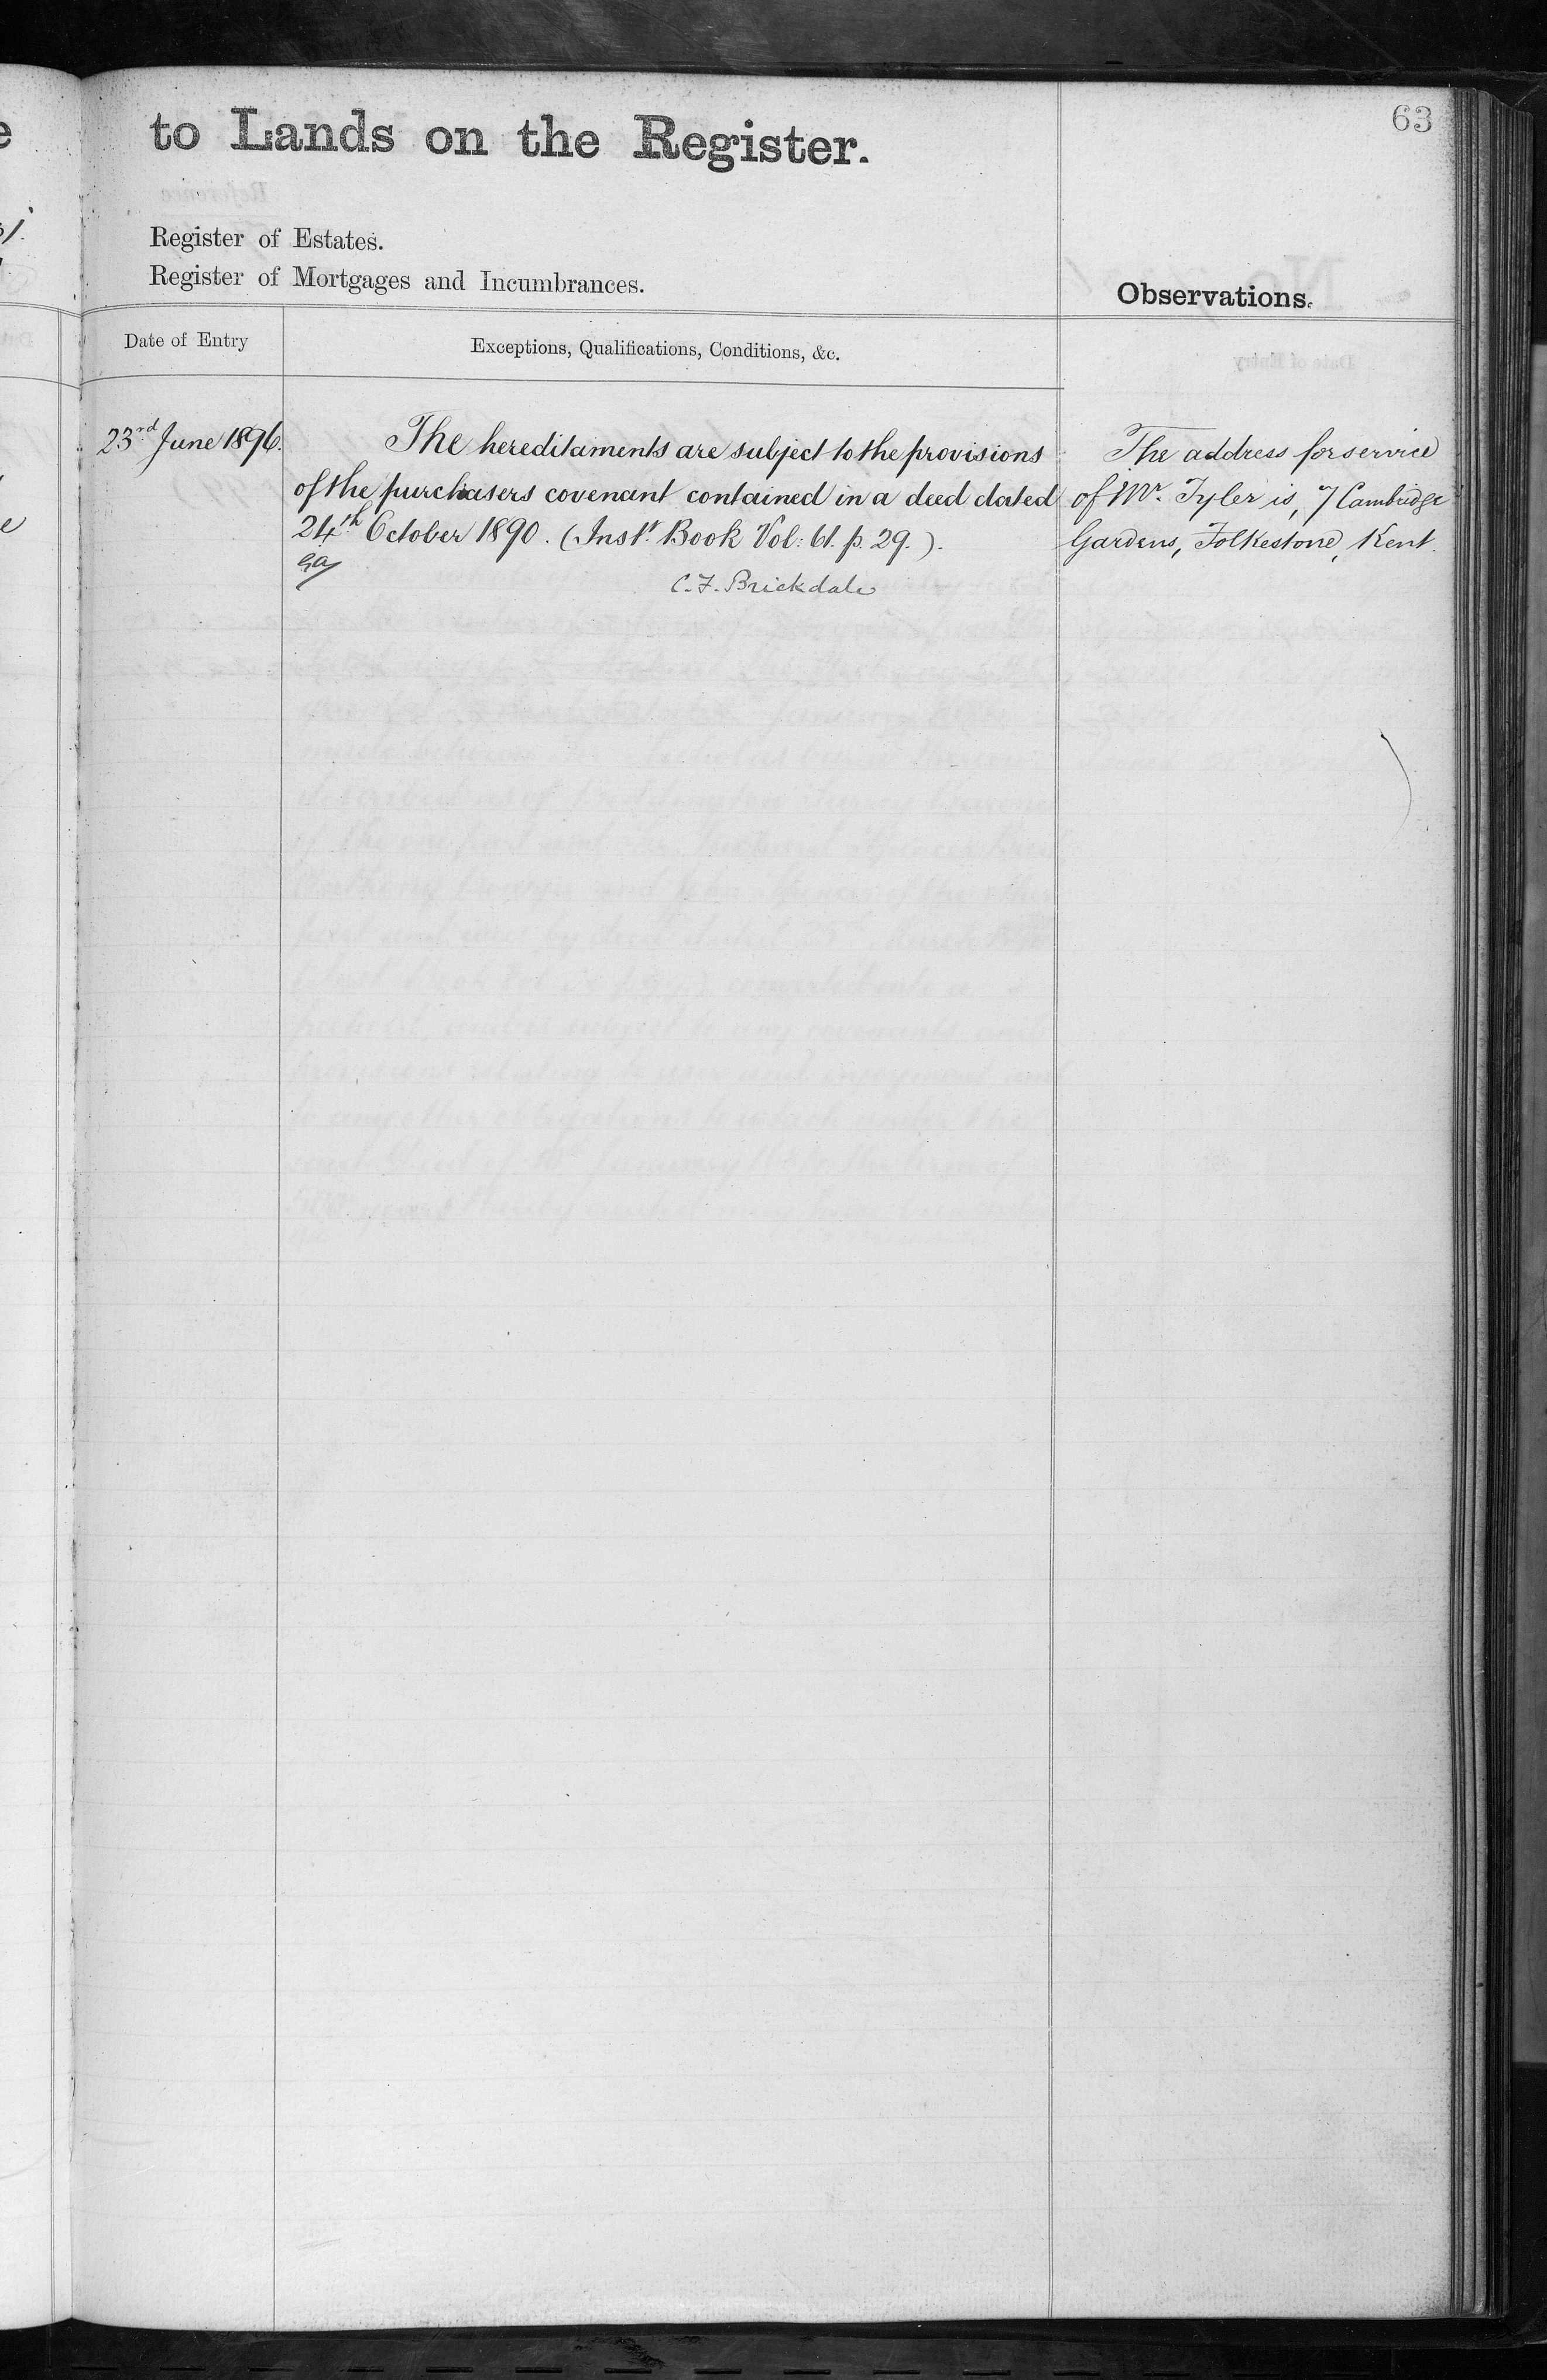 63
to Lands on the Register.
Register of Estates.
Register of Mortgages and Incumbrances.
Observations.
Date of Entry
Exceptions, Qualifications, Conditions, &c.
23rd June 1896.
The hereditaments are subject to the provisions
of the purchasers covenant contained in a deed dated
24th October 1890. (Inst. Book Vol: 61. p. 29.).
C. F. Brickdale
The address for service
of Mr. Tyler is, 7 Cambridge
Gardens, Folkestone, Kent.